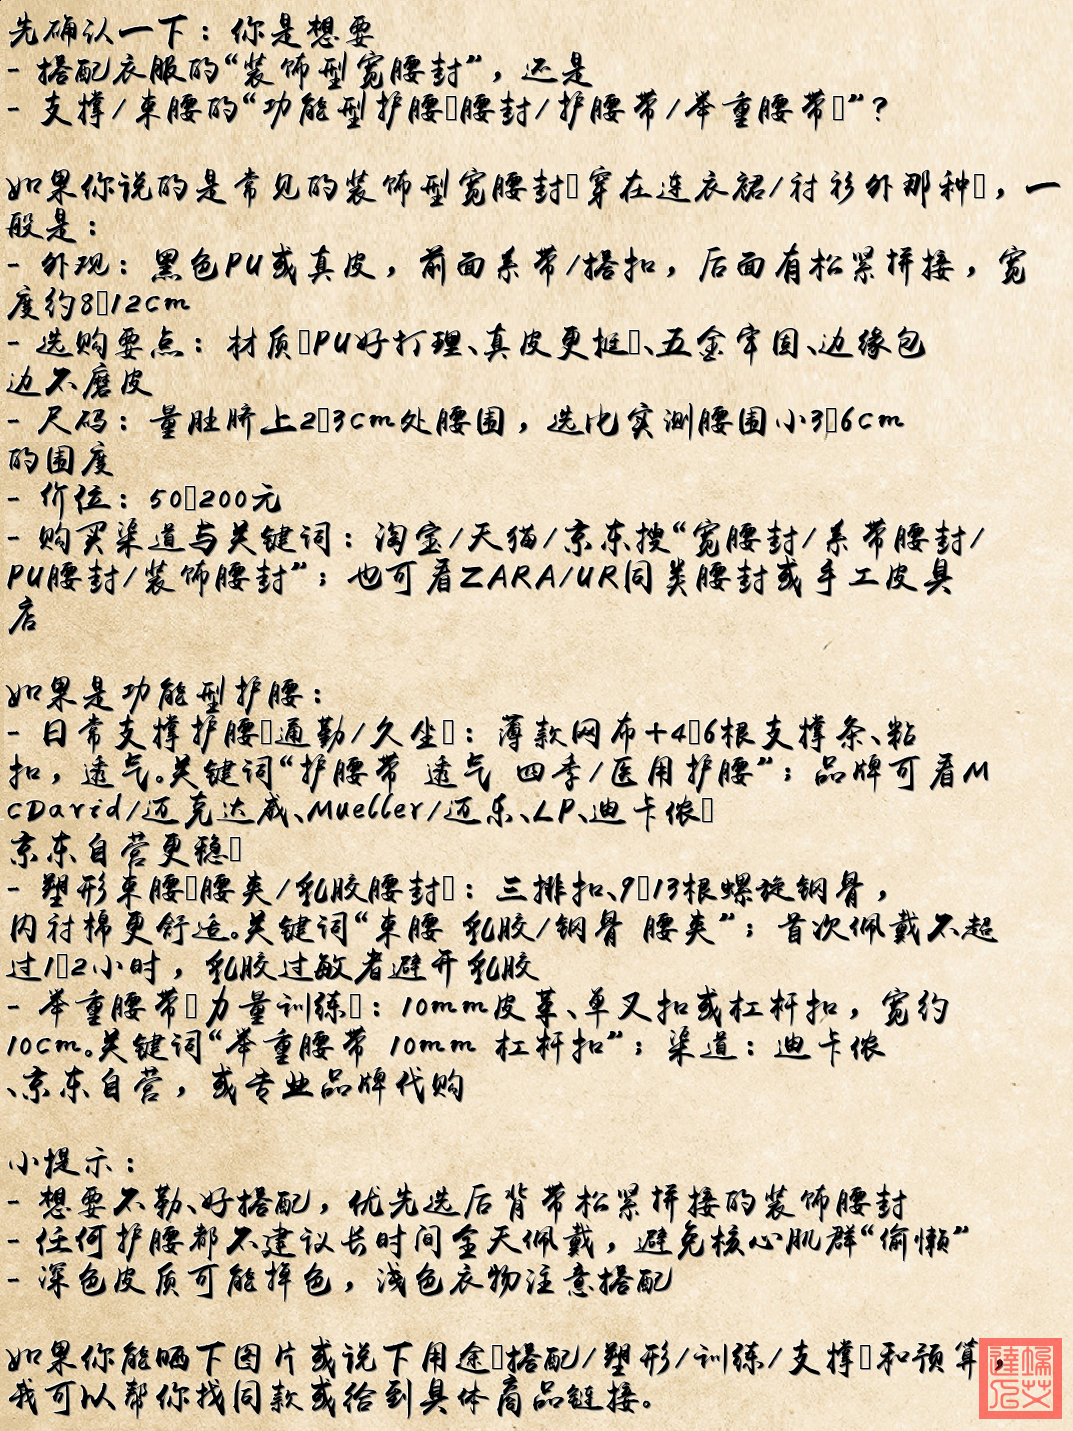 先确认一下：你是想要
- 搭配衣服的“装饰型宽腰封”，还是
- 支撑/束腰的“功能型护腰▯腰封/护腰带/举重腰带▯”？
如果你说的是常见的装饰型宽腰封▯穿在连衣裙/衬衫外那种▯，一
般是：
- 外观：黑色PU或真皮，前面系带/搭扣，后面有松紧拼接，宽
度约8▯12cm
- 选购要点：材质▯PU好打理、真皮更挺▯、五金牢固、边缘包
边不磨皮
- 尺码：量肚脐上2▯3cm处腰围，选比实测腰围小3▯6cm
的围度
- 价位：50▯200元
- 购买渠道与关键词：淘宝/天猫/京东搜“宽腰封/系带腰封/
PU腰封/装饰腰封”；也可看ZARA/UR同类腰封或手工皮具
店
如果是功能型护腰：
- 日常支撑护腰▯通勤/久坐▯：薄款网布+4▯6根支撑条、粘
扣，透气。关键词“护腰带 透气 四季/医用护腰”；品牌可看M
cDavid/迈克达威、Mueller/迈乐、LP、迪卡侬▯
京东自营更稳▯
- 塑形束腰▯腰夹/乳胶腰封▯：三排扣、9▯13根螺旋钢骨，
内衬棉更舒适。关键词“束腰 乳胶/钢骨 腰夹”；首次佩戴不超
过1▯2小时，乳胶过敏者避开乳胶
- 举重腰带▯力量训练▯：10mm皮革、单叉扣或杠杆扣，宽约
10cm。关键词“举重腰带 10mm 杠杆扣”；渠道：迪卡侬
、京东自营，或专业品牌代购
小提示：
- 想要不勒、好搭配，优先选后背带松紧拼接的装饰腰封
- 任何护腰都不建议长时间全天佩戴，避免核心肌群“偷懒”
- 深色皮质可能掉色，浅色衣物注意搭配
如果你能晒下图片或说下用途▯搭配/塑形/训练/支撑▯和预算，
我可以帮你找同款或给到具体商品链接。